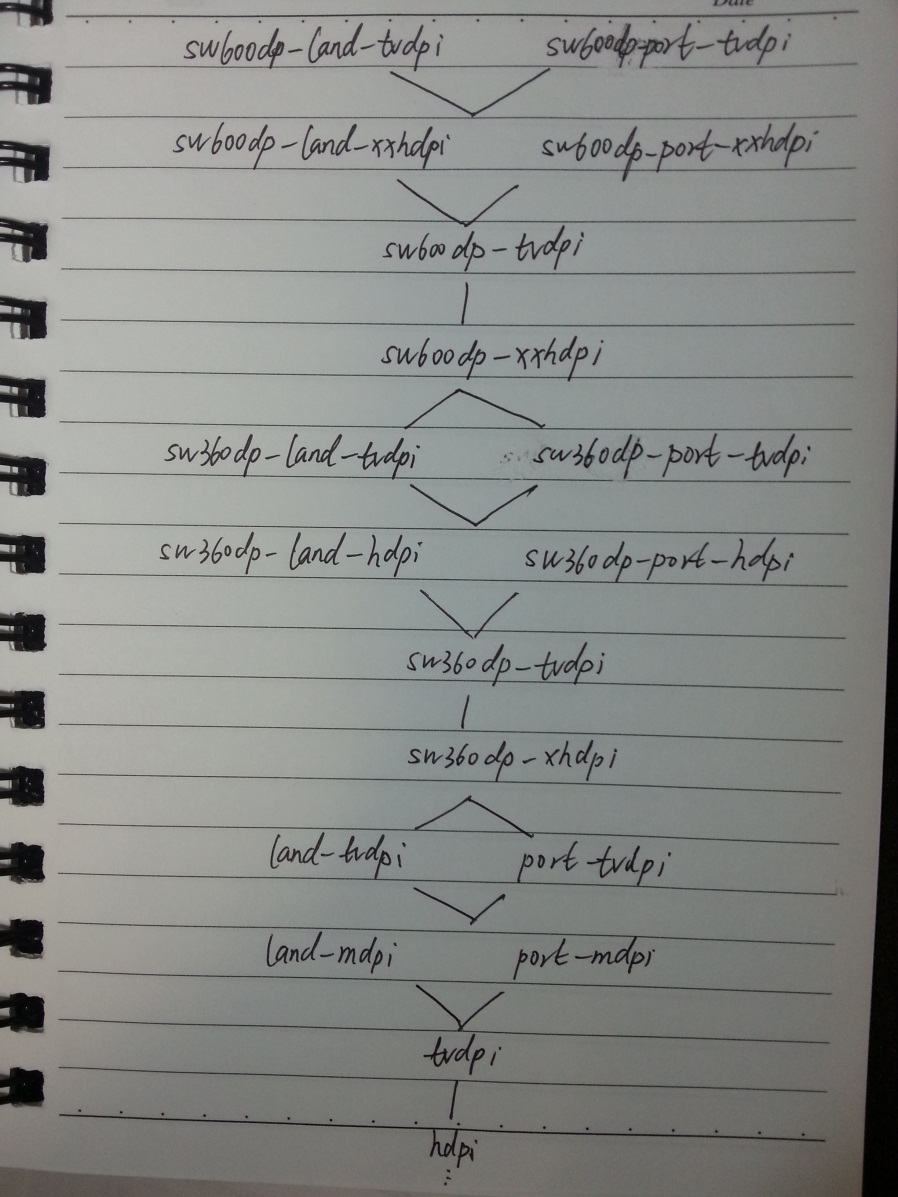 Date
sw600dp-land-tvdpi sw600dp-port-tvdpi
sw600dp-land-xxhdpi sw600dp-port-xxhdpi
sw600dp-tvdpi
sw600dp-xxhdpi
sw360dp-land-tvdpi sw360dp-port-tvdpi
sw360dp-land-hdpi sw360dp-port-hdpi
sw360dp-tvdpi
sw360dp-xhdpi
land-tvdpi port-tvdpi
land-mdpi port-mdpi
tvdpi
hdpi
⋮